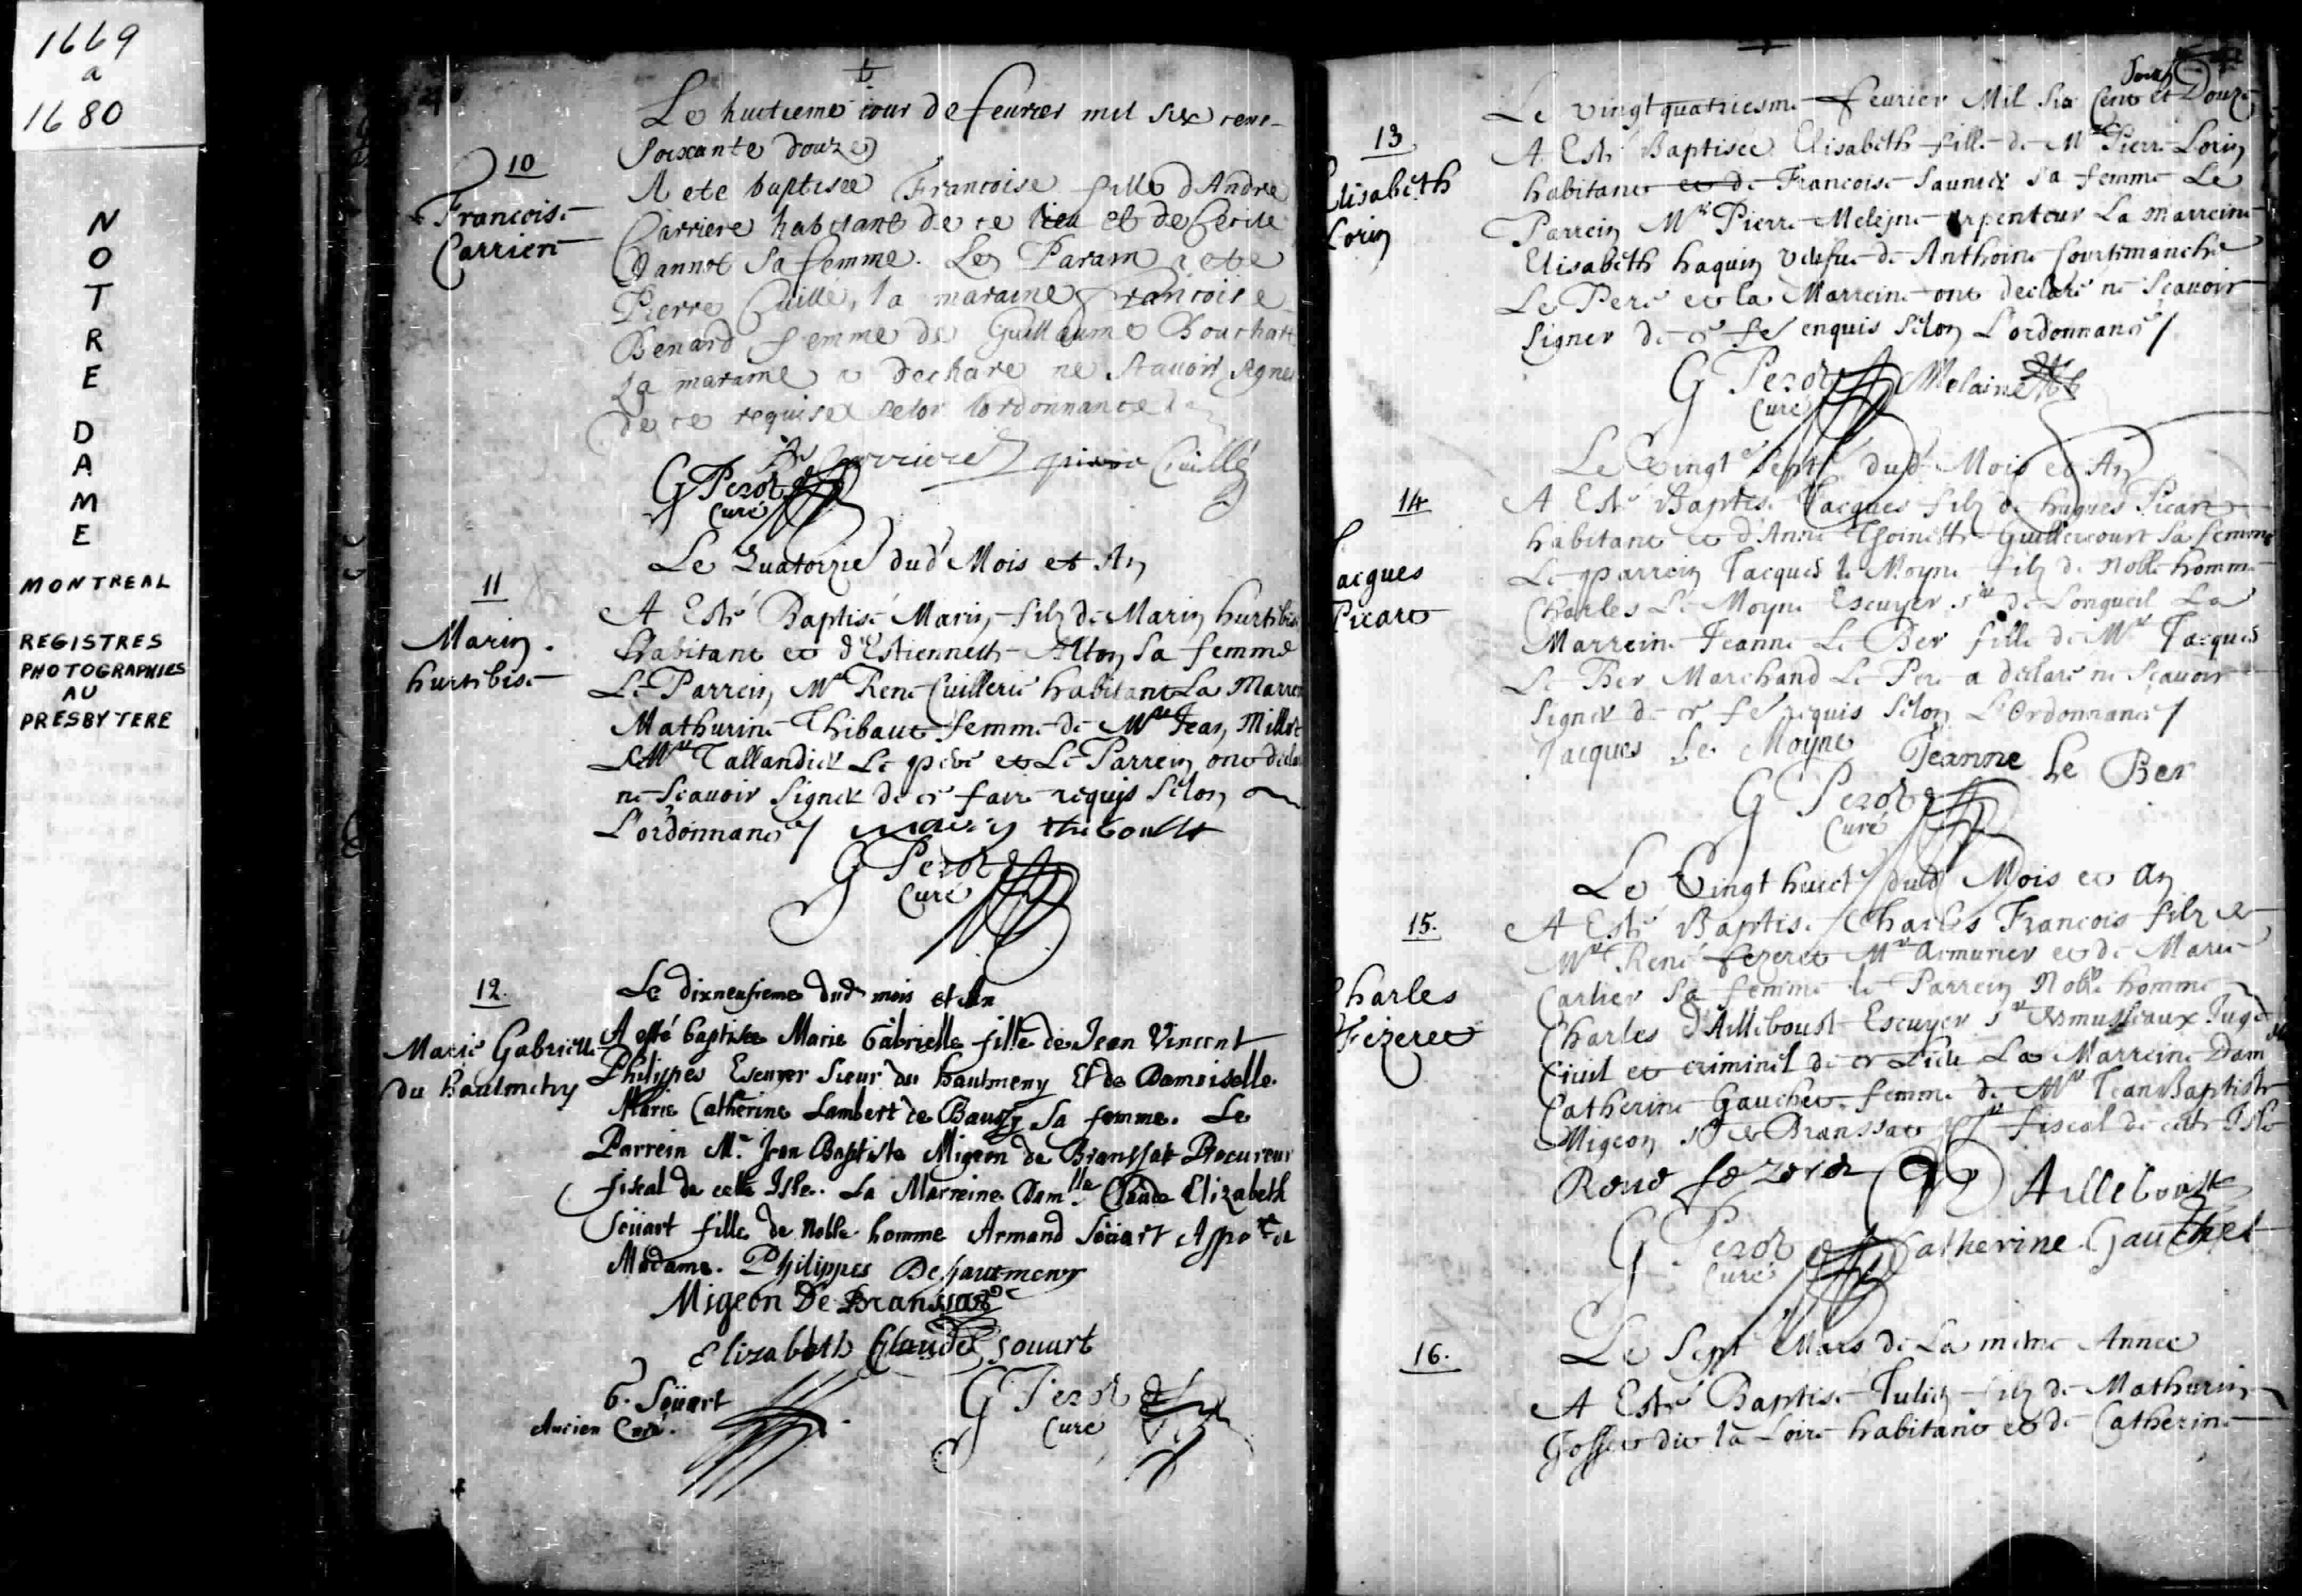 1669
a
1680
NOTRE DAME
MONTREAL
REGISTRES
PHOTOGRAPHIES
AU
PRESBYTERE
Le huitieme iour de feurier mil six cens
soixante douze
10
Francoise
Carriere
A ete baptisée Francoise fille d'Andre
Carriere habitant de ce lieu et de Cecile
Jannot sa femme. Le Parain a ete
Pierre Cuillé, la maraine Francoise
Benard femme de Guillaume Bouchart
La maraine a declare ne scauoir signer
de ce requise selon lordonnance
Carriere pierre Cuillé
G Perot
Curé
Le Quatorzie dud Mois et An
11
Marin
hurtibise
A Esté Baptisé Marin filz de Marin hurtibise
habitant et d'Estiennette Alton sa femme
Le Parrein Mre René Cuillerié habitant La Marrei
Mathurine Thibaut femme de Mre Jean Millot
Mre Tallandier Le pere et Le Parrein ont decla
ne Scauoir Signer de ce faire requis Selon
L'ordonnance / thiboulte
G Perot
Curé
12.
Marie Gabrielle
du hautmeny
Le dixneufieme dud mois et An
A esté baptisée Marie Gabrielle fille de Jean Vincent
Philippes Escuyer Sieur du hautmeny Et de Damoiselle
Marie Catherine Lambert de Baussy sa femme. Le
Parrein Mr. Jean Baptiste Migeon de Branssat Procureur
fiscal de cette Isle. La Marreine Damlle Claude Elizabeth
Soüart fille de Noble homme Armand Soüart
Madame. Philippes De hautmeny
Migeon De Branssat
Elizabeth Claude Souart
G. Soüart
Ancien Curé.
G Perot
Curé
Soixte
Le vingt quatriesme feurier Mil Six Cent et Douze
13
Elisabeth
Lorin
A Esté Baptisée Elisabeth fille de Mre Pierre Lorin
habitant et de Francoise Saunier sa femme Le
Parrein Mre Pierre Melesne arpenteur La Marreine
Elisabeth haquin vuefue de Anthoine Courtimanche
Le Pere et la Marreine ont declaré ne Scauoir
Signer de ce fe enquis Selon L'ordonnance /
G Perot Melaine
Curé
Le Vingt Sept dud Mois et An
14
Jacques
Picart
A Esté Baptisé Jacques filz de hugues Picart
habitant et d'Anne Thoinette Guillercourt sa femme
Le parrein Jacques le Moyne filz de Noble homme
Charles Le Moyne Escuyer Sr de Longueil La
Marreine Jeanne Le Ber fille de Mre Jacques
Le Ber Marchand Le Pere a declaré ne Scauoir
Signer de ce fe requis Selon L'Ordonnance /
Jacques Le Moyne Jeanne Le Ber
G Perot
Curé
Le Vingt huict dud Mois et An
15.
Charles
Fezeret
A Esté Baptisé Charles Francois filz de
Mre René fezeret Mre Armurier et de Marie
Carlier sa femme le Parrein Noble homme
Charles d'Ailleboust Escuyer Sr des musseaux Juge
Ciuil et criminel de ce Lieu La Marreine Dam
Catherine Gauchet femme de Mre Jean Baptiste
Migeon Sr de Branssat fiscal de cette Isle
Rene fezeret Ailleboust
G Perot Catherine Gauchet
Curé
Le Sept Mars de La meme Annee
16.
A Esté Baptisé Julien filz de Mathurin
Gosset dit la Loire habitant et de Catherine